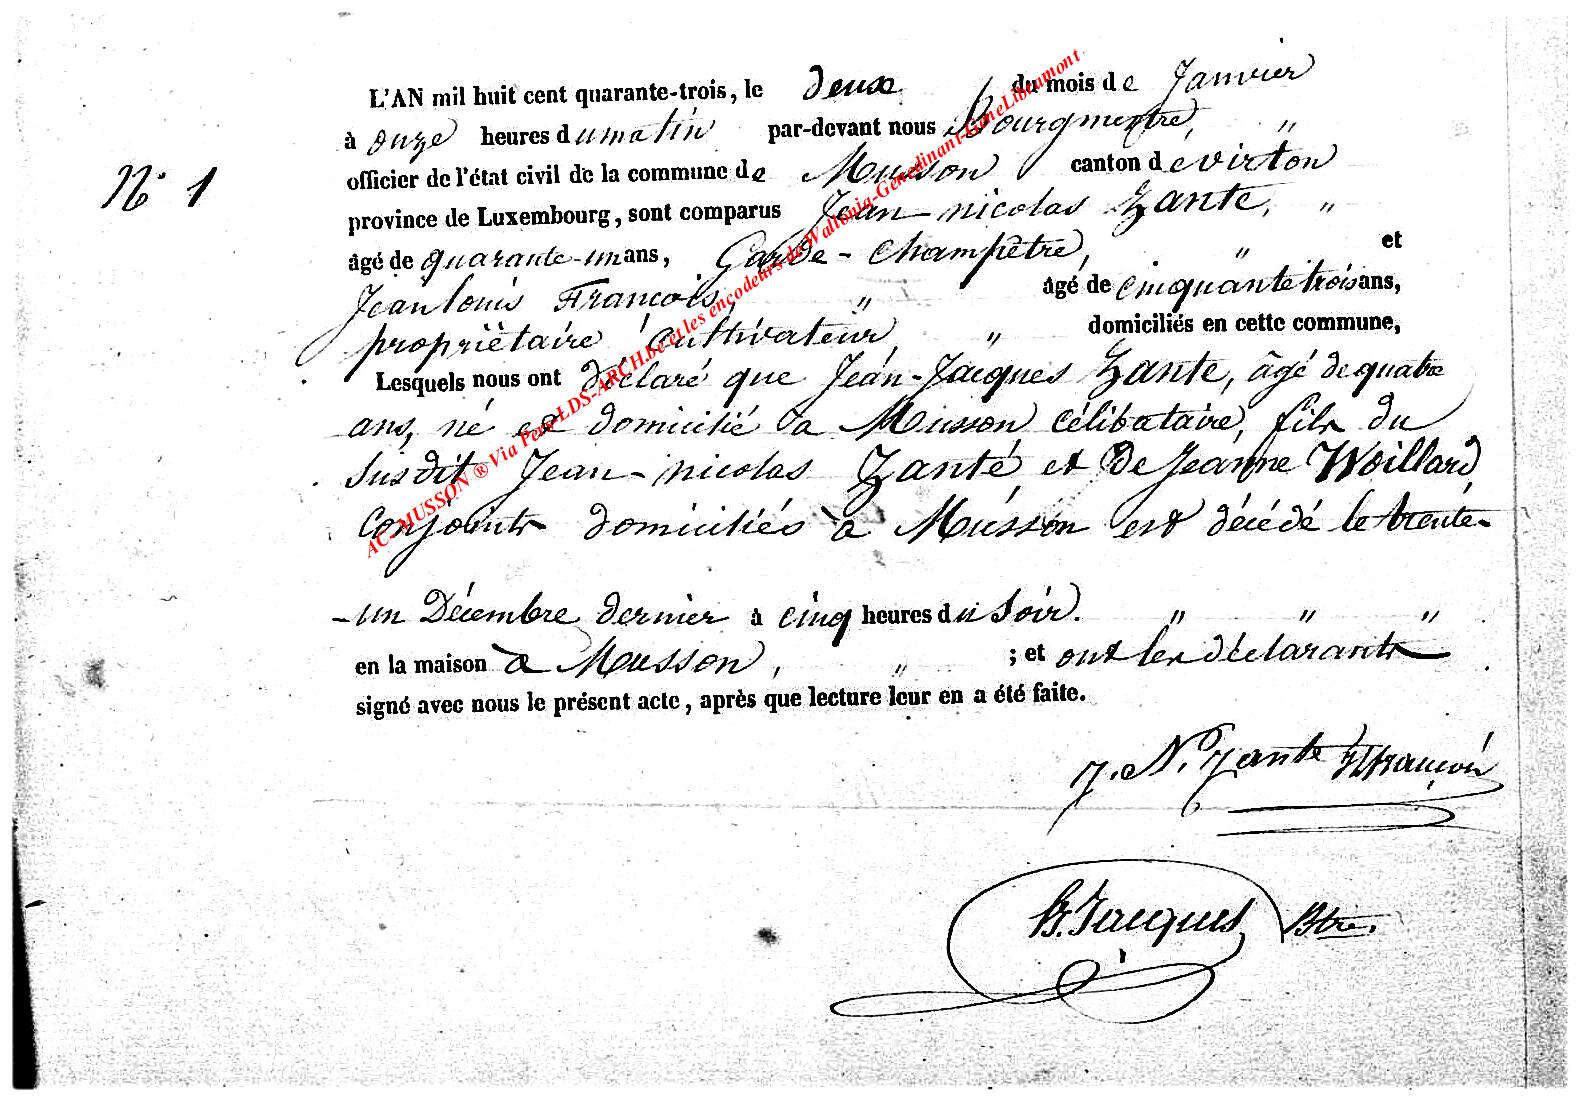 L'AN mil huit cent quarante-trois, le deux du mois de Janvier
à onze heures du matin par-devant nous Bourgmestre, "
N° 1
officier de l'état civil de la commune de Musson canton de virton
province de Luxembourg, sont comparus Jean-nicolas Zante, "
âgé de quarante-un ans, Garde-Champêtre, " et
Jean louis François, " âgé de cinquante trois ans,
propriètaire cultivateur " domiciliés en cette commune,
Lesquels nous ont déclaré que Jean-Jacques Zante, âgé de quatre
ans, né et domicilié à Musson célibataire, fils du
susdit Jean-nicolas Zanté et de Jeanne Woillard
Conjoints domiciliés à Musson est décédé le trente-
-un Décembre dernier à cinq heures du soir. " " "
en la maison à Musson, " ; et ont les déclarants
signé avec nous le présent acte, après que lecture leur en a été faite.
J. N. Zante JLfrançois
B. Jacques Btre.
AC-MUSSON ® Via Pers-LDS-ARCH.be et les encodeurs de Wallonia-Genedinant-GeneLibramont